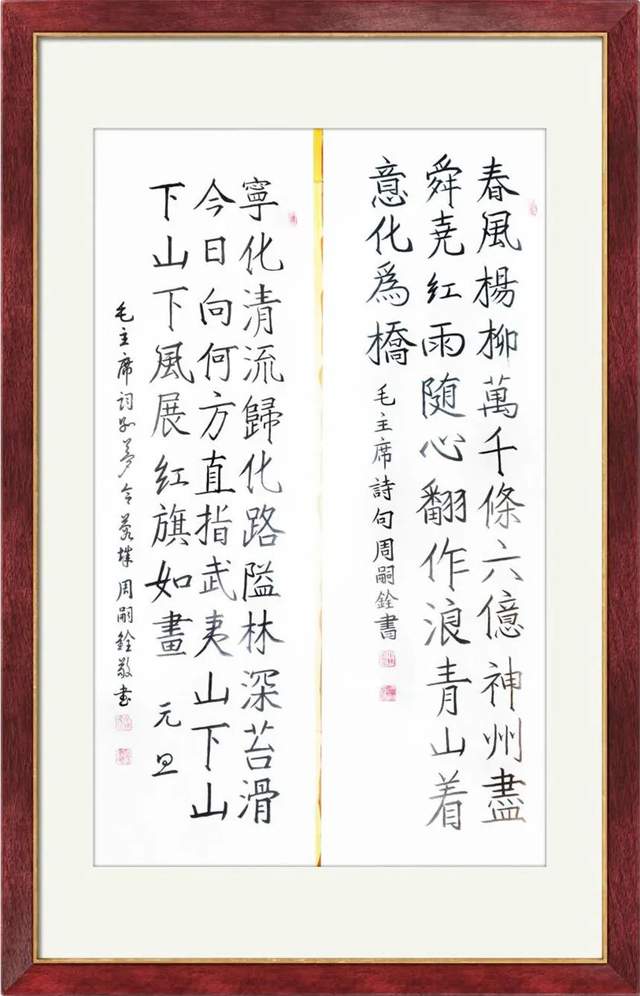 春風楊柳萬千條六億神州盡
舜尭红雨随心翻作浪青山着
意化爲橋 毛主席詩句周嗣銓書
寧化清流歸化路隘林深苔滑
今日向何方直指武夷山下山
下山下風展红旗如畫 元旦
毛主席词如夢令 周嗣銓敬书